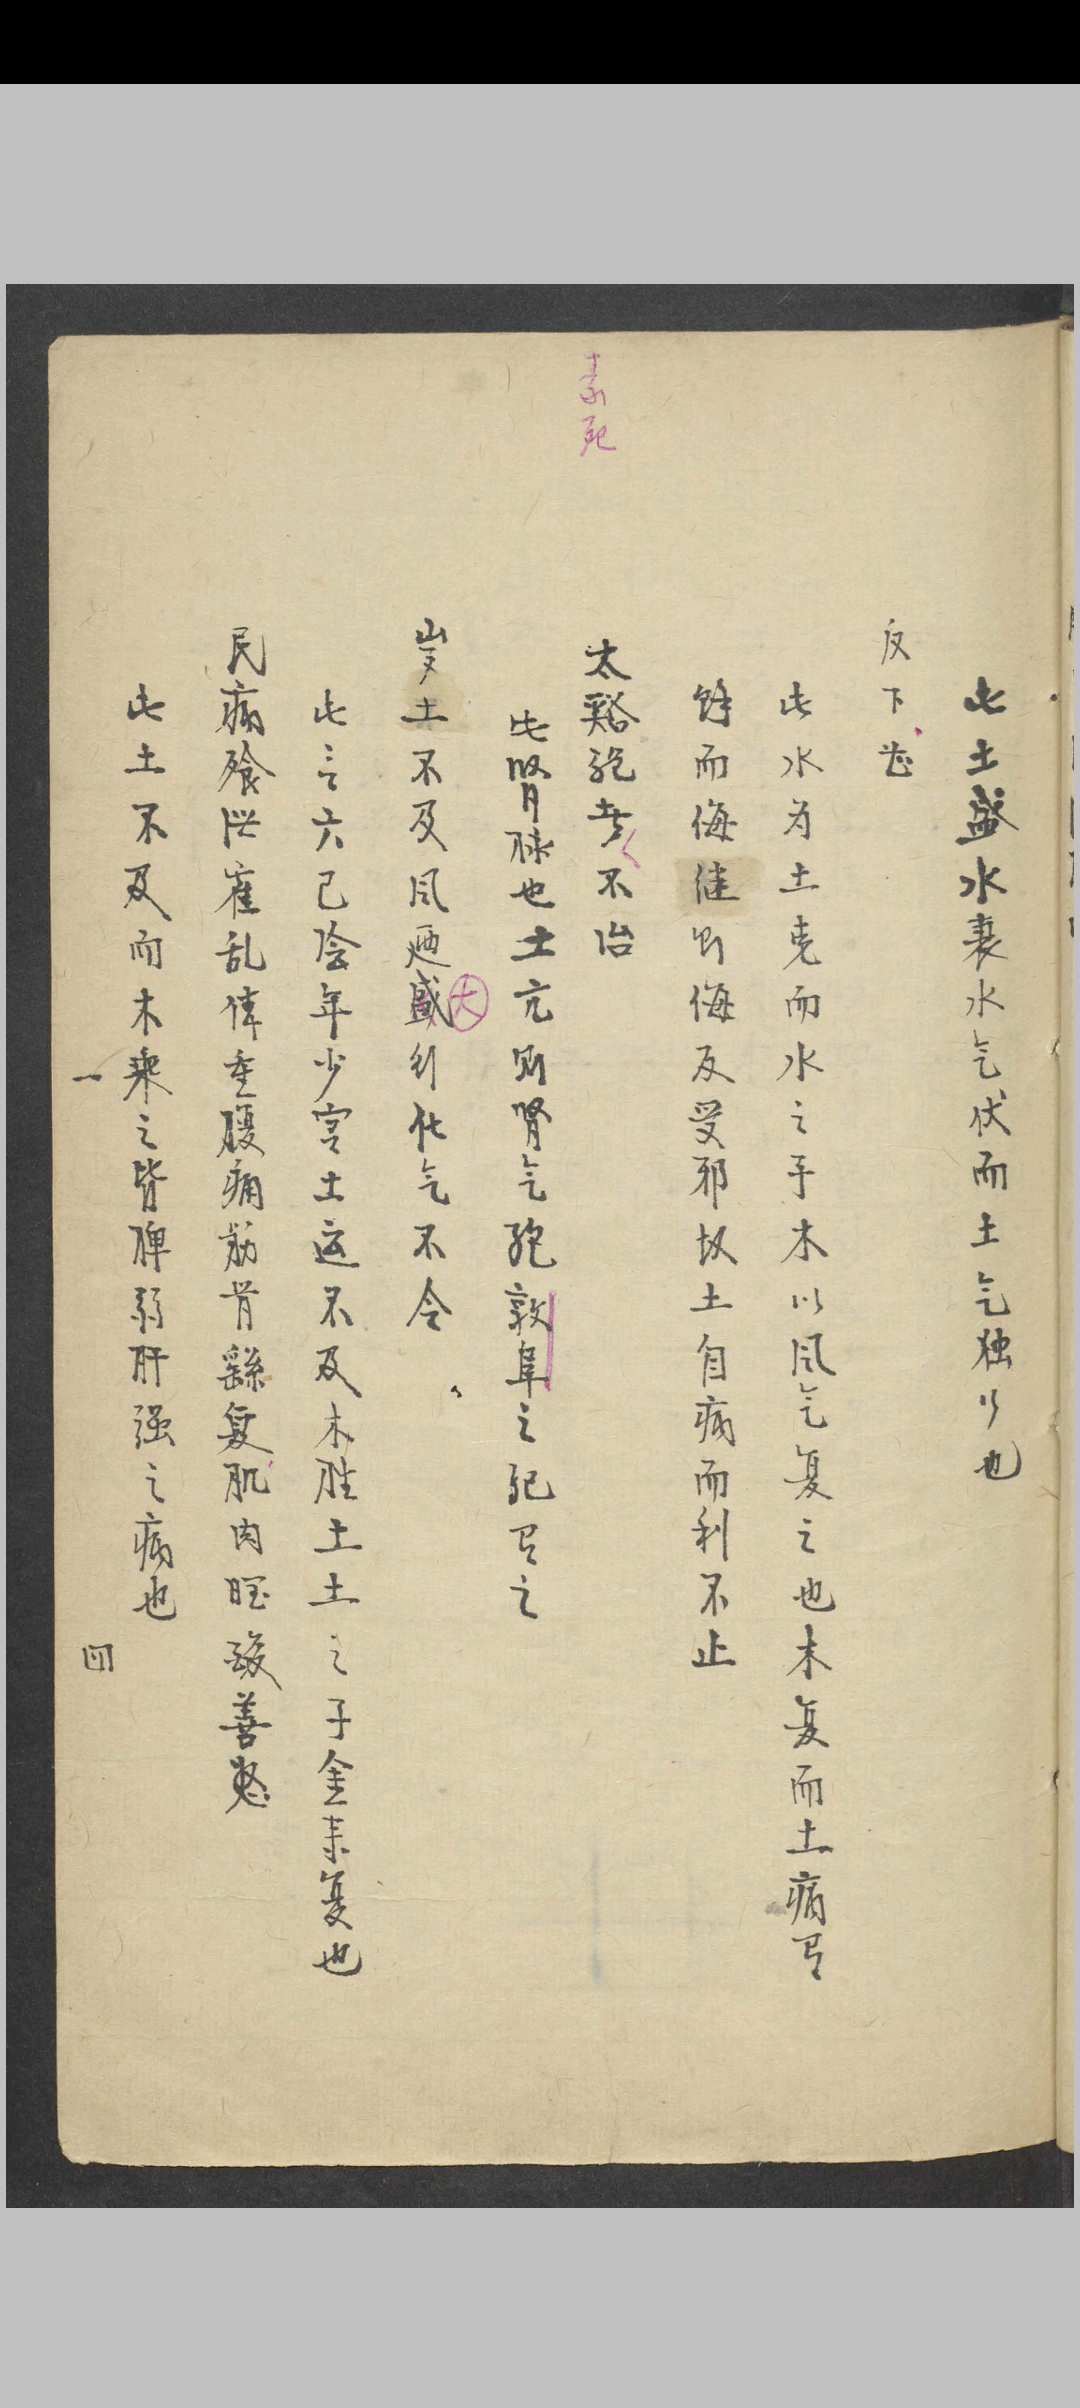 此土盛水衰水气伏而土气独行也
反下甚
此水为土克而水之子木以风气复之也木复而土病有
馀而侮继则侮反受邪故土自病而利不止
素死
太谿绝者不治
此肾脉也土亢则肾气绝敦阜之纪有之
岁土不及风廼盛行化气不令
大
此言六己阴年少宫土运不及木胜土土之子金来复也
民病飧泄霍乱体重腹痛筋骨繇复肌肉𥆧酸善怒
此土不及而木乘之皆脾弱肝强之病也
四一